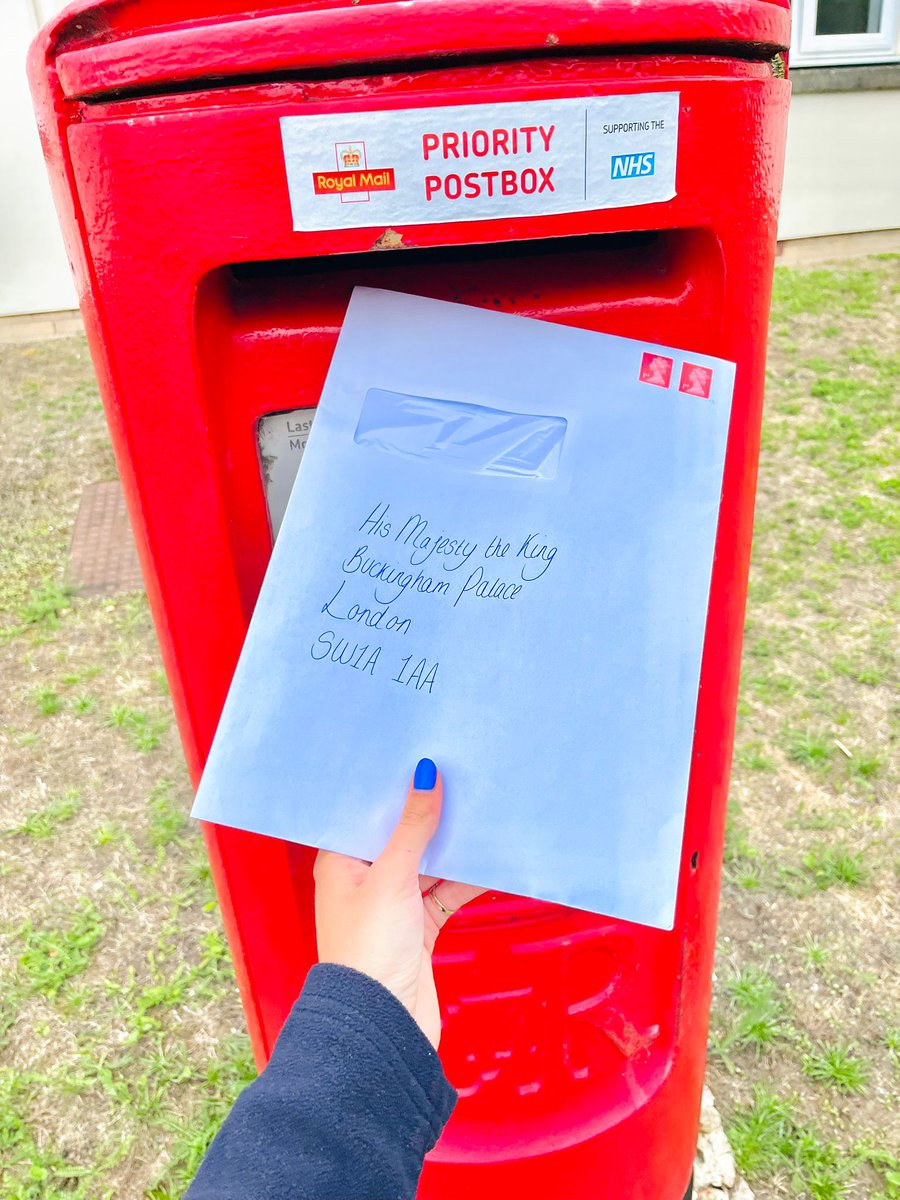 PRIORITY
POSTBOX
Royal Mail
SUPPORTING THE
NHS
Last
His Majesty the King
Buckingham Palace
London
SW1A 1AA